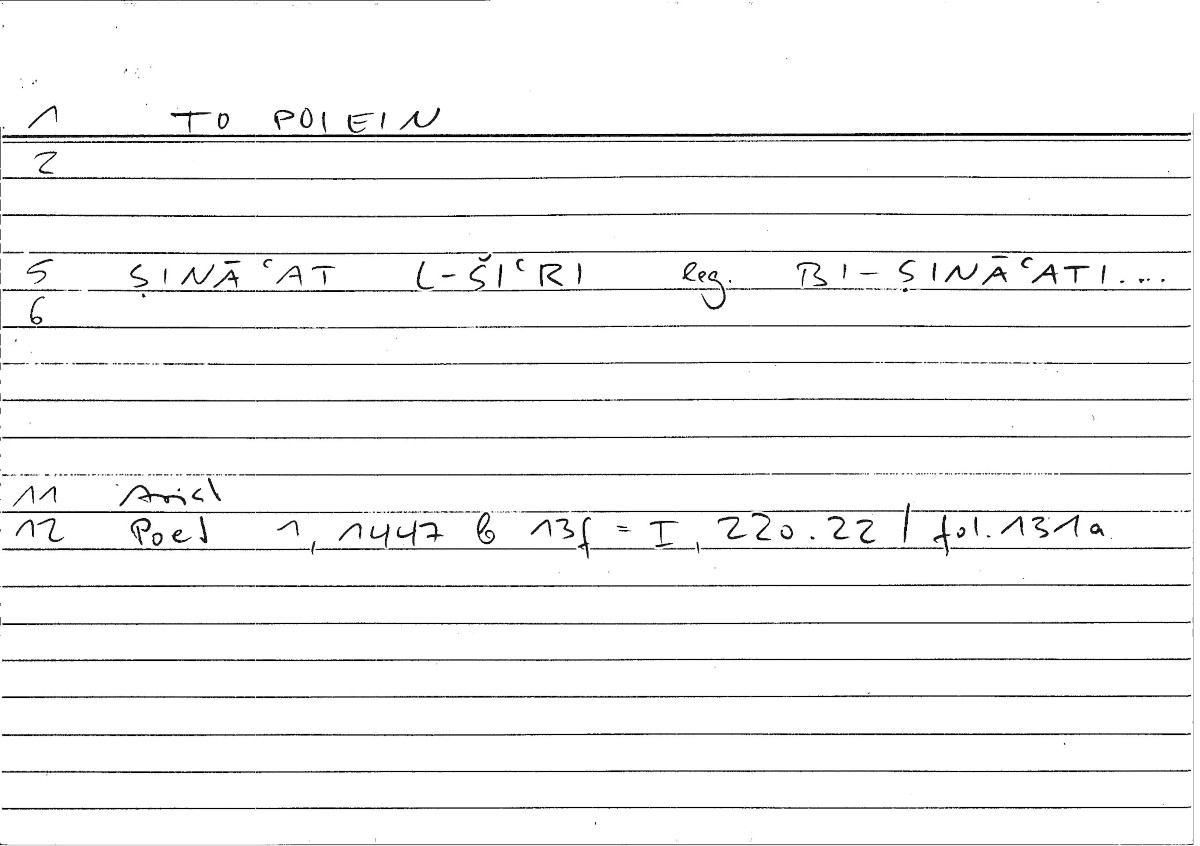 1 TO POIEIN
2
5 ṢINĀʿAT L-ŠIʿRI leg. BI-ṢINĀʿATI....
6
11 Arist
12 Poet 1, 1447 b 13f = I, 220.22 / fol. 131a